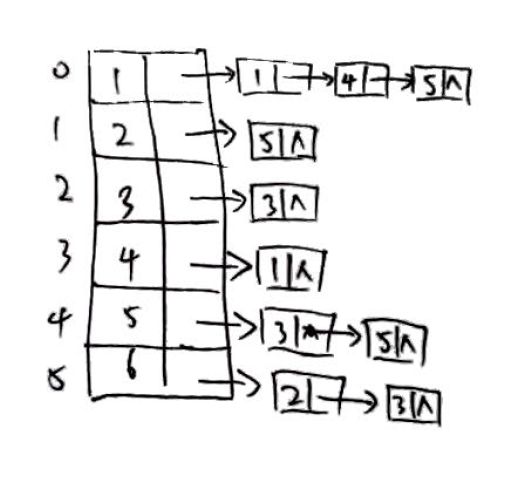 0 1 1 4 5 ∧
1 2 5 ∧
2 3 3 ∧
3 4 1 ∧
4 5 3 5 ∧
5 6 2 3 ∧